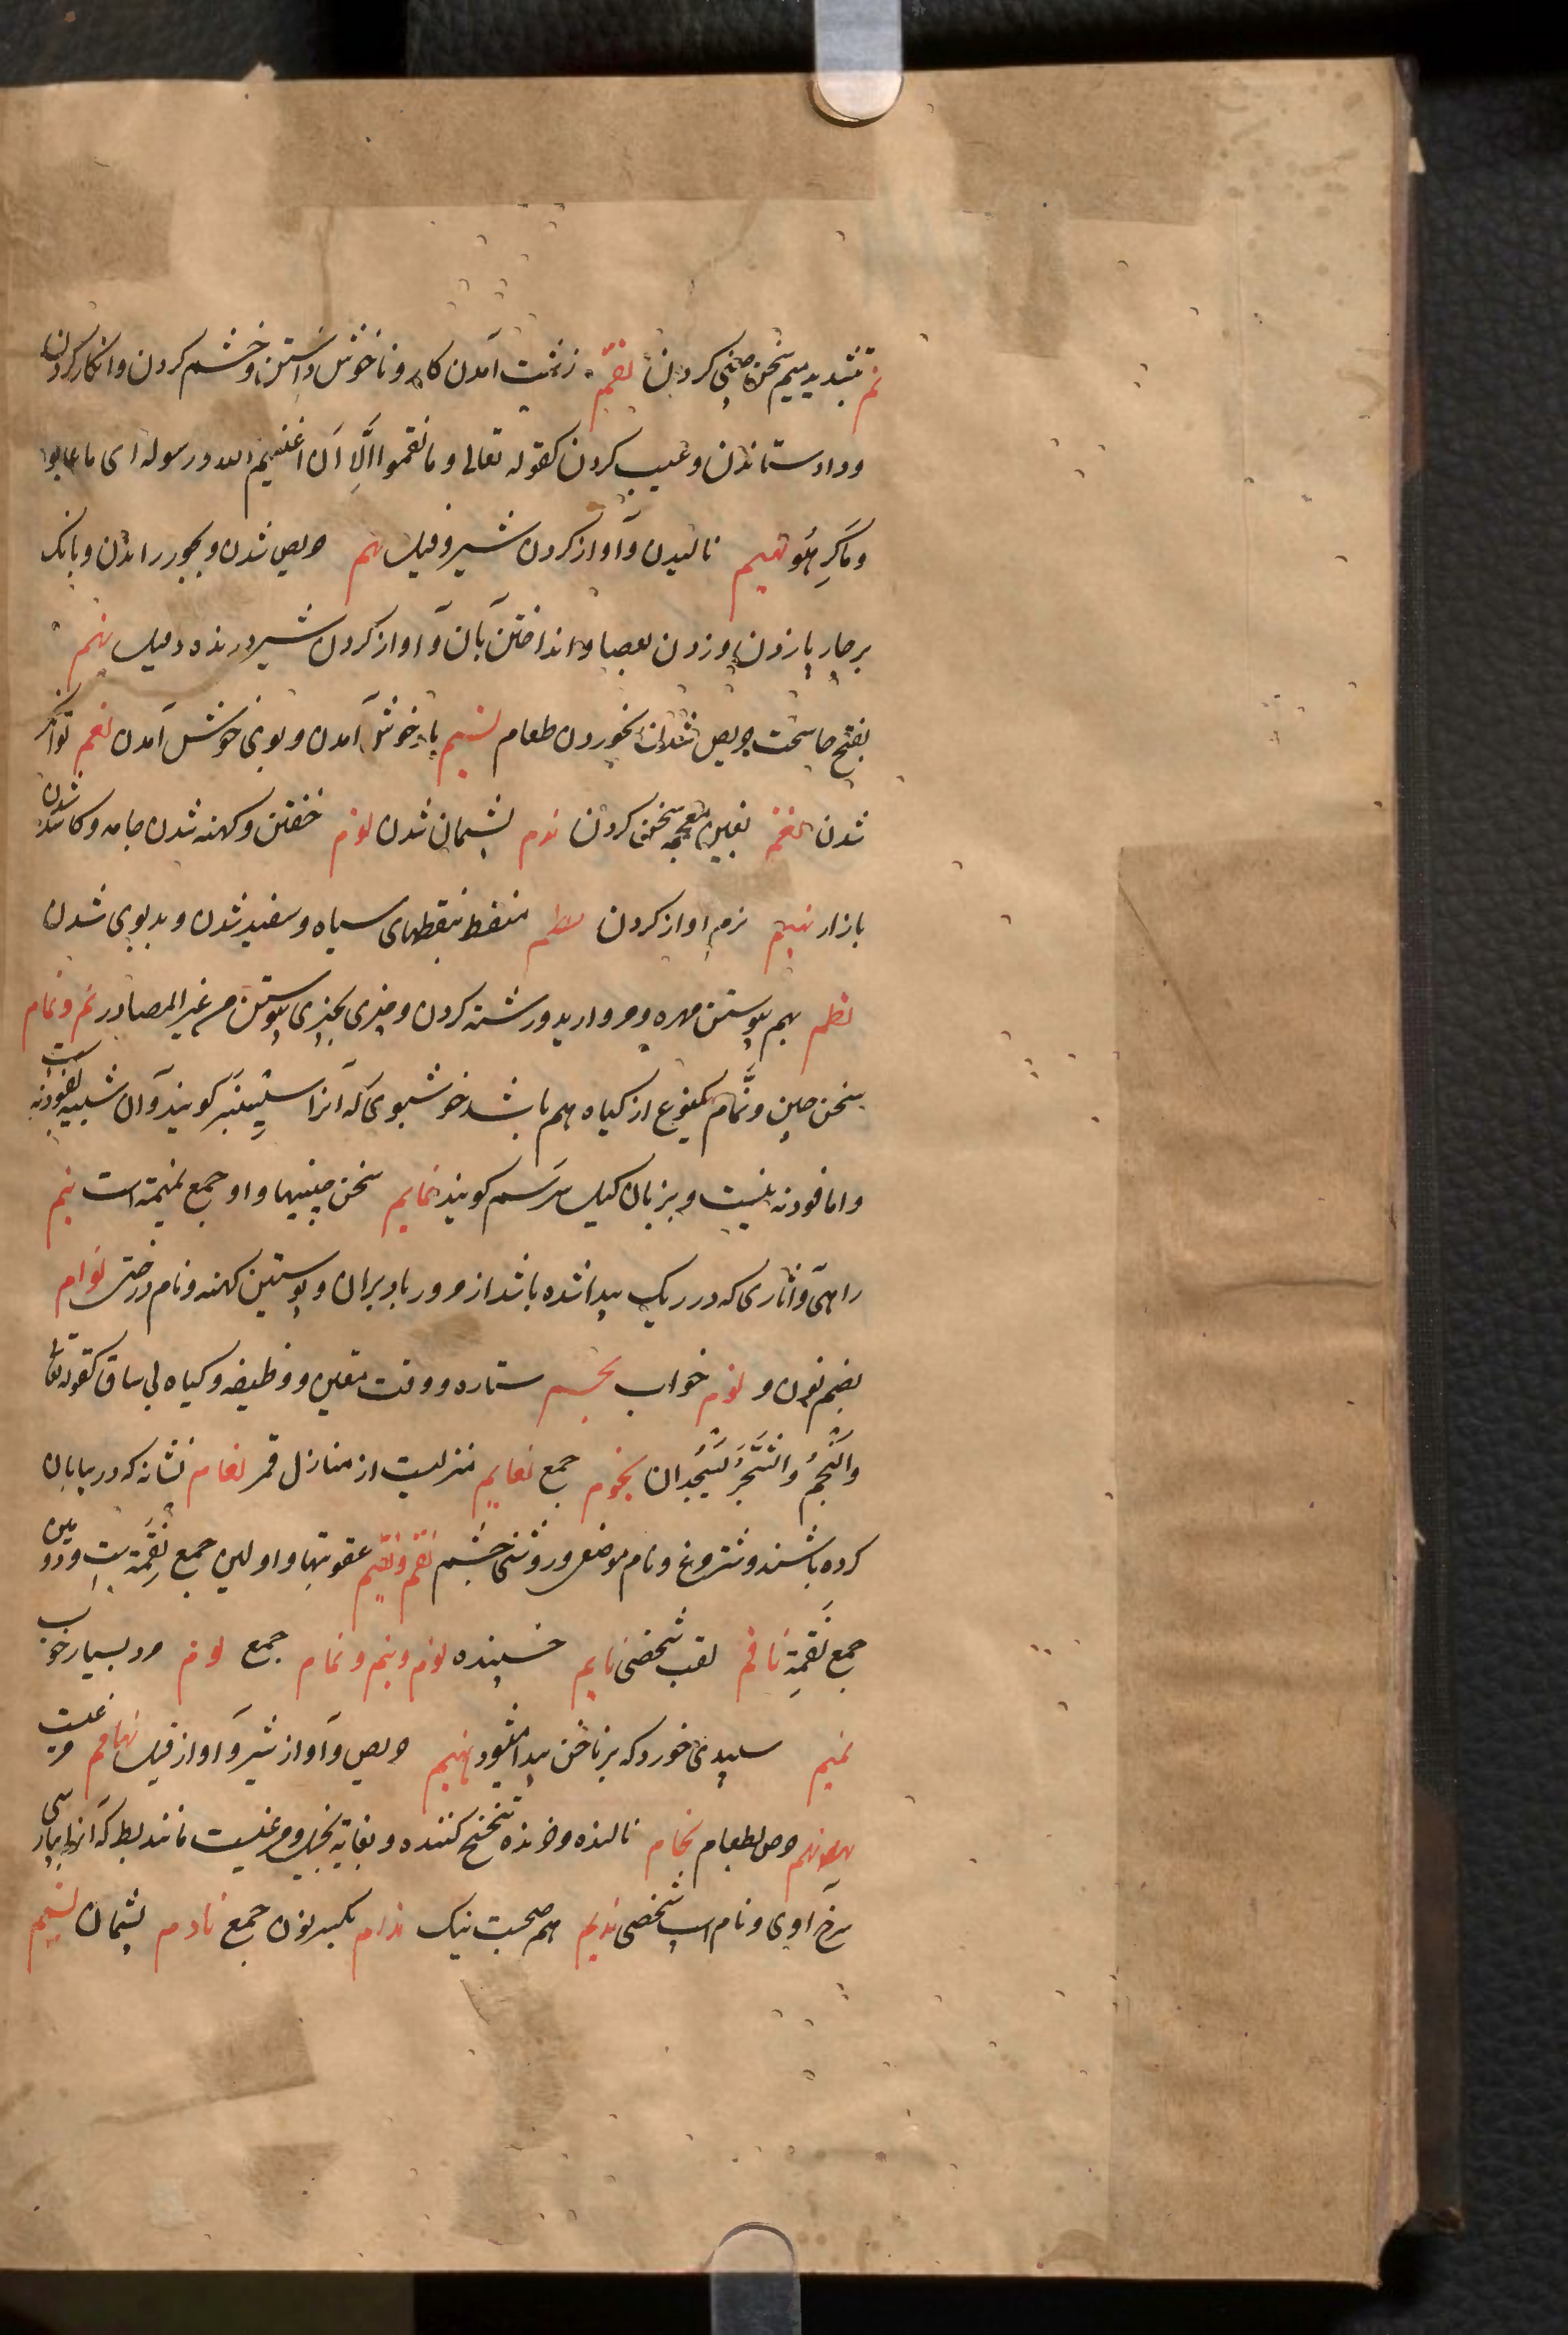 نم بتشدید میم سخن چینی کردن نقم زشت آمدن کار و ناخوش داشتن و خشم کردن و انکار کردن
و داد ستاندن و عیب کردن کقوله تعالی و ما نقموا الّا آن اغنیهم الله و رسوله ای ما عابوا
و ماکرهو نهیم نالیدن و آواز کردن شیر و فیل نهم حریص شدن و بجور راندن و بانک
بر چارپا زدن و زدن بعصا و انداختن بآن و آواز کردن شیر درنده و فیل نهم
بفتح ها سخت حریص شدن بخوردن طعام نسیم باد خوش آمدن و بوی خوش آمدن نعم توانکر
شدن نغم بغین معجمه سخن کردن ندم پشیمان شدن نوم خفتن و کهنه شدن جامه و کاسد شدن
بازار نئیم نرم آواز کردن منقط بنقطهای سیاه و سفید شدن و بدبوی شدن
نظم بهم پیوستن مهره و مروارید در رشته کردن و چیزی بچیزی پیوستن من غیر المصادر نم و نمام
سخن چین و نمّام یکنوع از کیاه هم باشد خوشبوی که آنرا سیسنبر کویند و آن شبیه بفودنه است
و اما فودنه نیست و بزبان کیل سرسم کویند نمایم سخن چینیها و او جمع نمیمة است نیم
راهی و آثاری که در ریک پیدا شده باشد از مرور باد بران و پوستین کهنه و نام درختی نوام
بضم نون و نوم خواب نجم ستاره و وقت معین و وظیفه و کیاه بی ساق کقوله تعا
وَالنَّجْمُ وَالشَّجَرُ یَسْجُدان نجوم جمع نعایم منزلیست از منازل قمر نعام نشانه که در بیابان
کرده باشند و شترمرغ و نام موضعی و روشنی چشم نقم و نقیم عقوبتها و اولین جمع نِقِمَة است و دومین
جمع نَقِمَة ناقم لقب شخصی نایم خسپنده نوم و نیم و نمام جمع نوم مرد بسیار خواب
نمیم سپیدی خورد که بر ناخن پیدا میشود نهیم حریص و آواز شیر و آواز فیل نهام مرغیست
نهم حرص بطعام نحام نالنده و خرنده تنحنح کننده و بغایة بخیل و مرغیست مانند بط که آنرا بپارسی
سرخ آوی و نام اسپ شخصی ندیم هم صحبت نیک ندام بکسر نون جمع نادم پشیمان نسیم